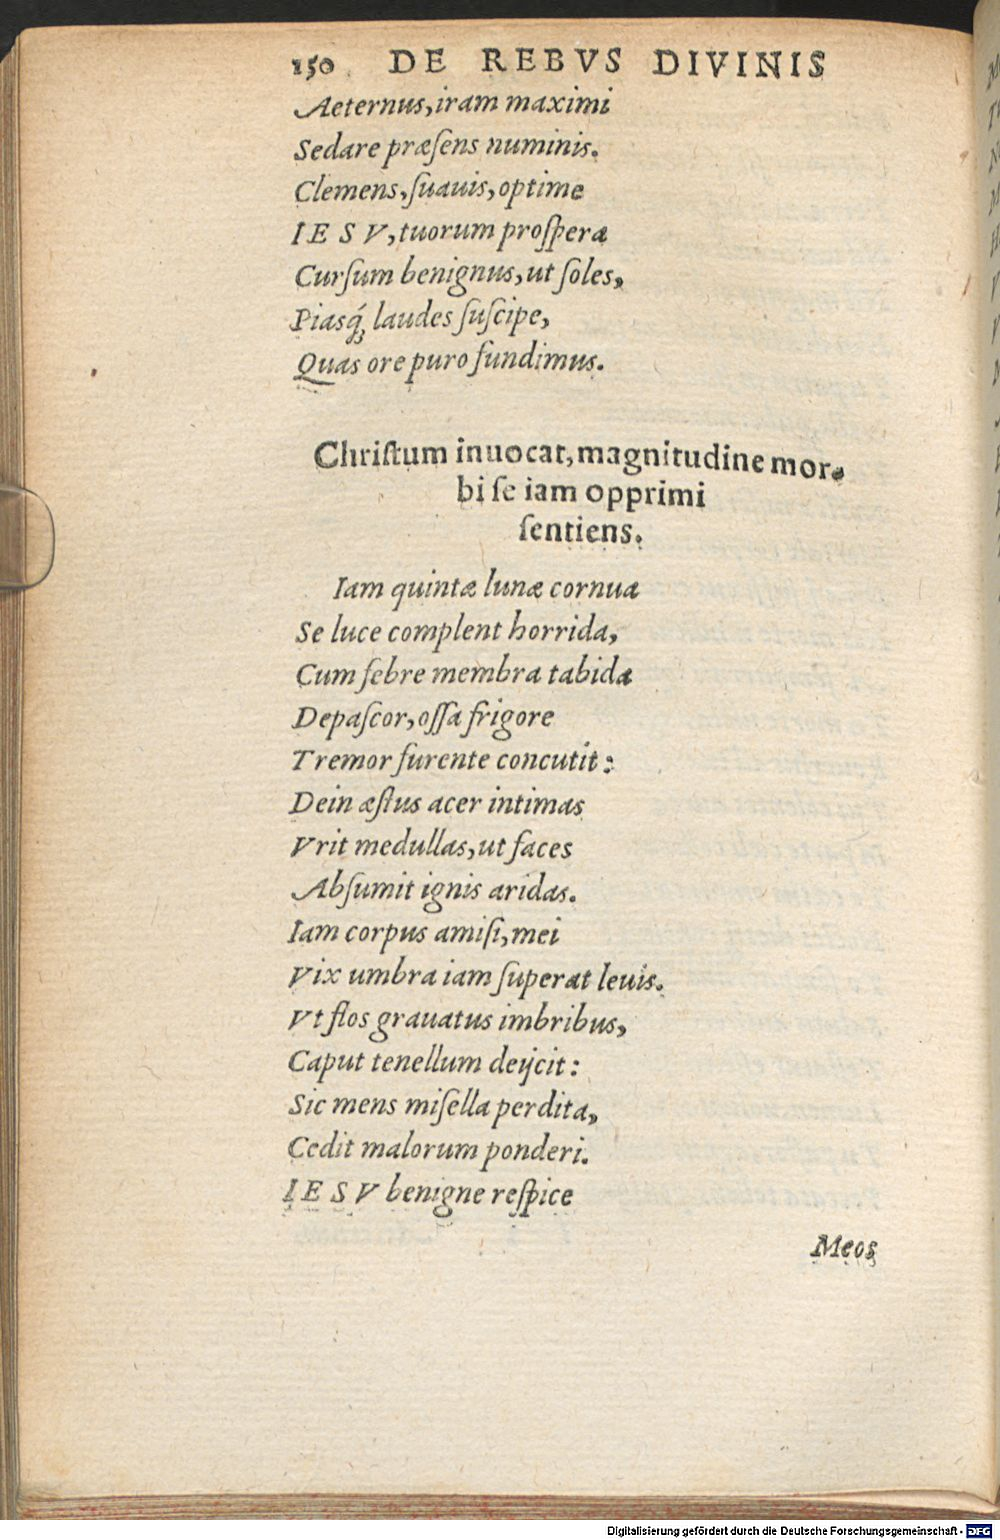 150 DE REBVS DIVINIS
Aeternus, iram maximi
Sedare præſens numinis.
Clemens, ſuauis, optime
IESV, tuorum proſpera
Curſum benignus, ut ſoles,
Piasq́; laudes ſuſcipe,
Quas ore puro fundimus.
Chriſtum inuocat, magnitudine mor-
bi ſe iam opprimi
ſentiens.
Iam quintæ lunæ cornua
Se luce complent horrida,
Cum febre membra tabida
Depaſcor, oſſa frigore
Tremor furente concutit:
Dein æſtus acer intimas
Vrit medullas, ut faces
Abſumit ignis aridas.
Iam corpus amiſi, mei
Vix umbra iam ſuperat leuis.
Vt flos grauatus imbribus,
Caput tenellum deijcit:
Sic mens miſella perdita,
Cedit malorum ponderi.
IESV benigne reſpice
Meos
Digitalisierung gefördert durch die Deutsche Forschungsgemeinschaft - DFG